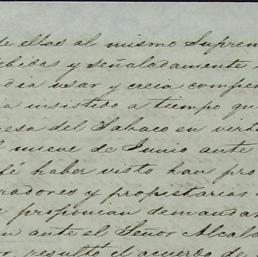 de ellas al mismo Suprem
ebidas y señaladamente
dia usar y creia compe
a insistido a tiempo qu
esa del Tabaco en virt
l nueve de Junio ante
fé haber visto han pro
radores y propietarias
y proponian demanda
n ante el Señor Alcal
or resultó el acuerdo de